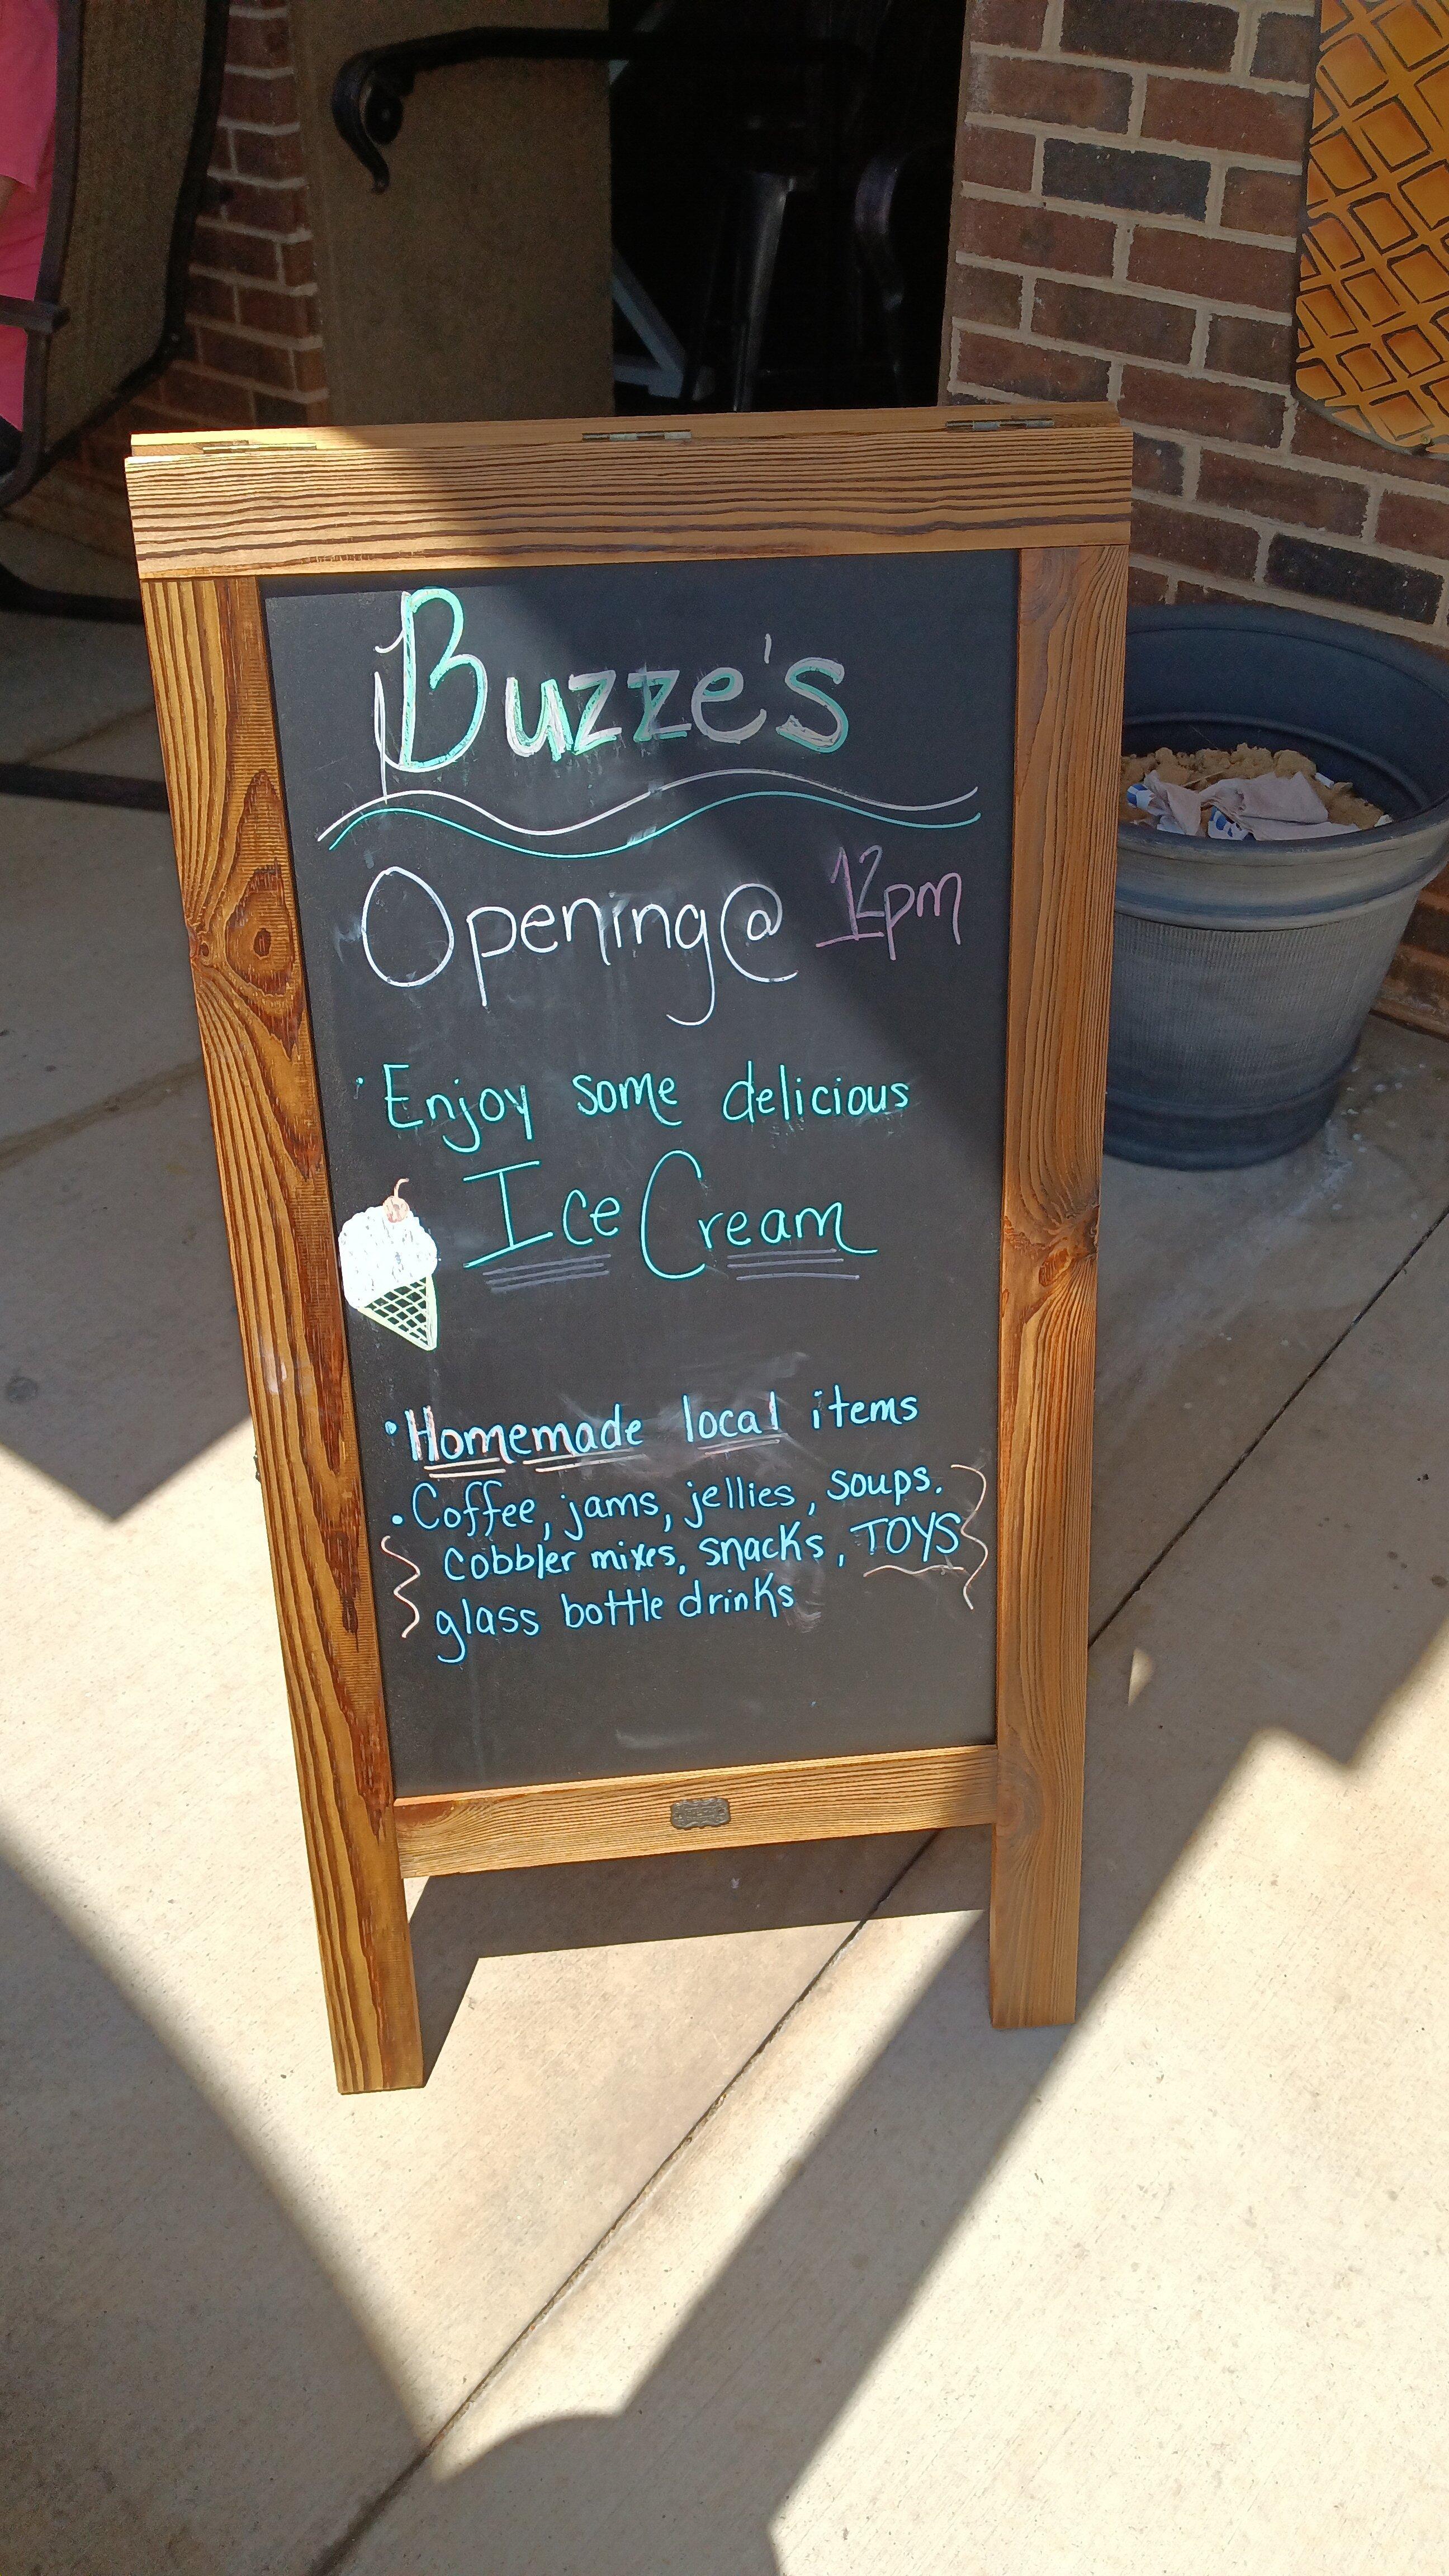 Buzze's
Opening@ 12pm
· Enjoy some delicious
Ice Cream
· Homemade local items
· Coffee, jams, jellies, soups.
cobbler mixes, snacks, TOYS
glass bottle drinks